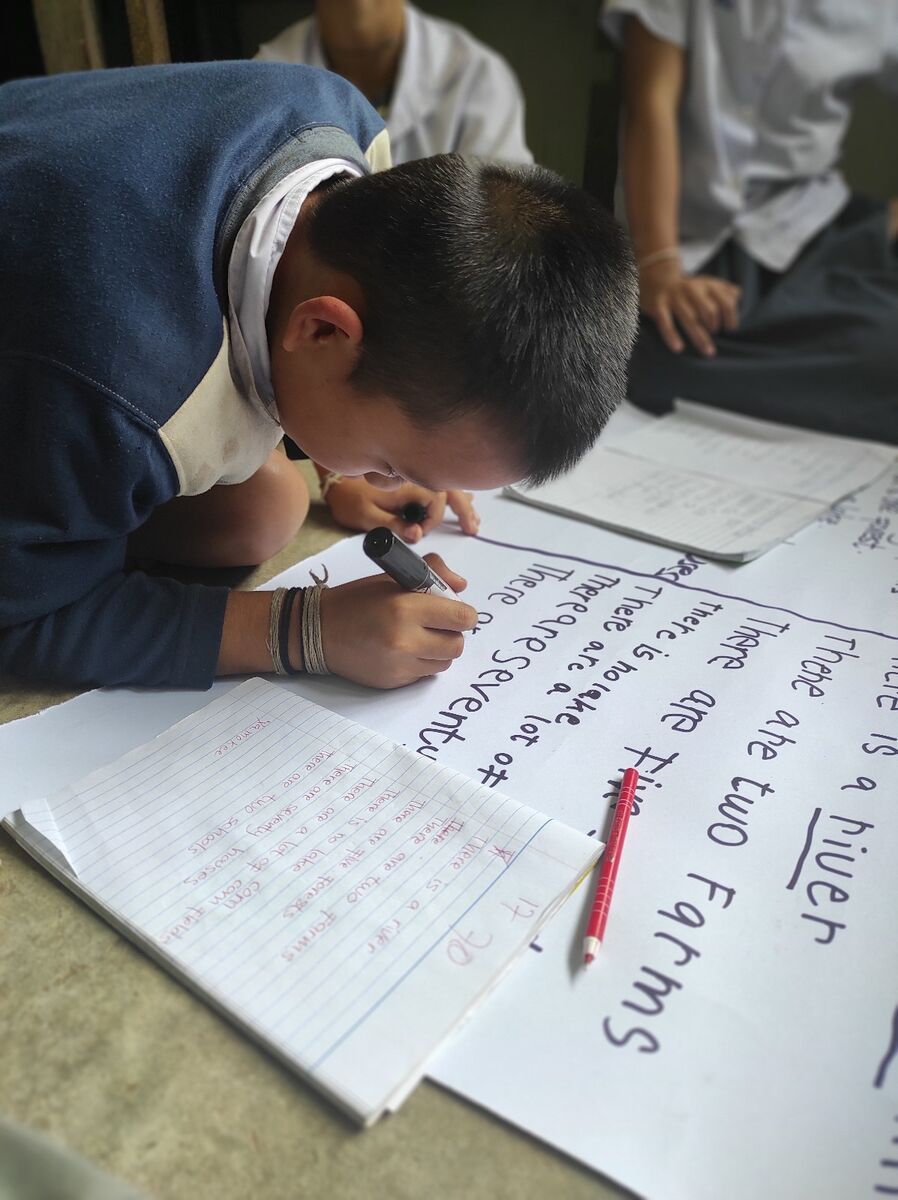 here is a hiver
There ahe two Farms
There are Five
there is no lake
There are a lot of
There are sevent
There
17 70
There is a river
There are two Farms
There are five Forests
There is no lake
There are a lot of corn fields
There are seventy houses
There are two schools